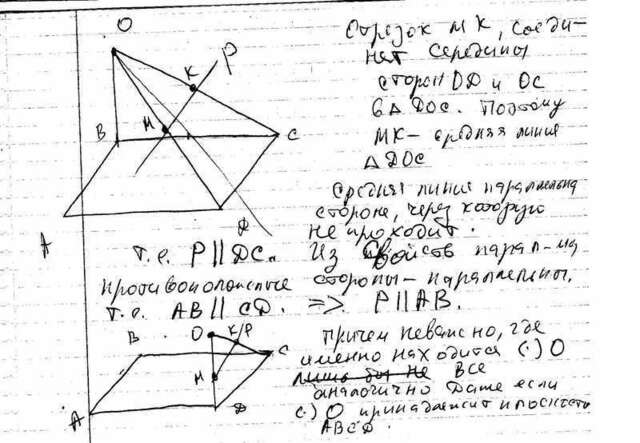 O
K
P
B
M
C
A
D
Отрезок MK, соеди-
няет середины
сторон OD и OC
в △ DOC. Поэтому
MK - средняя линия
△ DOC
Средняя линия параллельна
стороне, через которую
не проходит.
т.е. P || DC. Из свойств парал-ма
противоположные стороны - параллельны.
т.е. AB || CD. => P || AB.
O
K/P
B
C
M
A
D
Причем неважно, где
именно находится (·) O
все
аналогично даже если
(·) O принадлежит плоскости
ABCD.